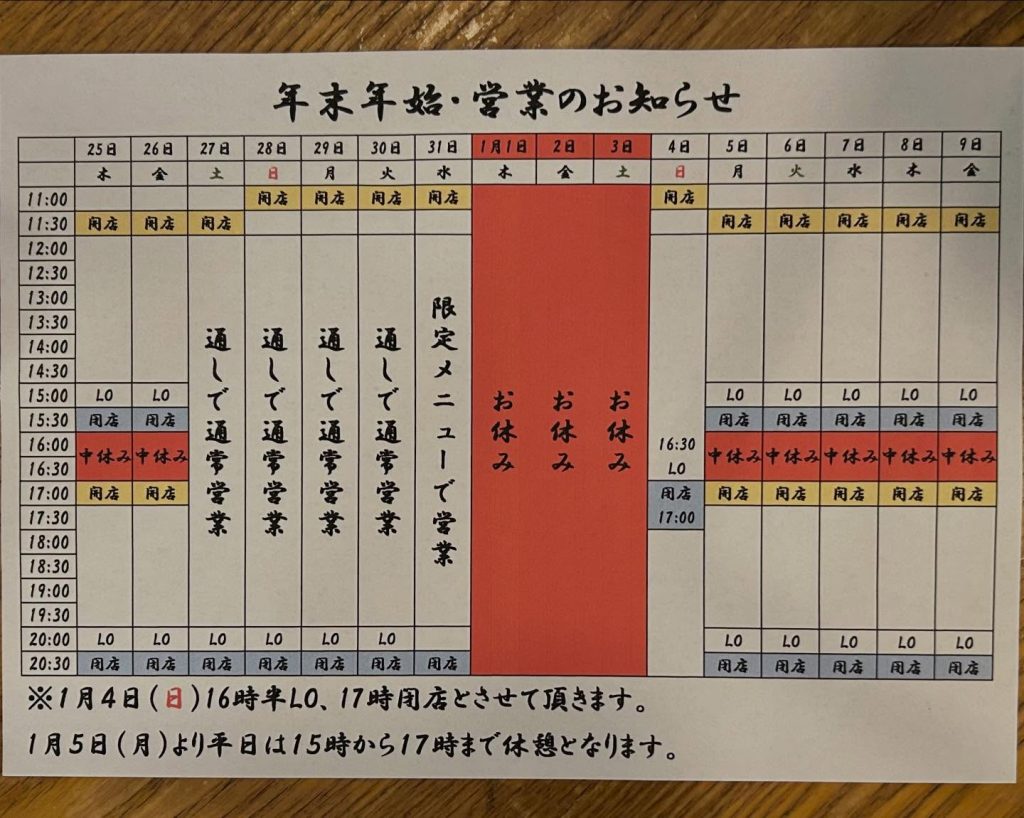 年末年始・営業のお知らせ
25日 26日 27日 28日 29日 30日 31日 1月1日 2日 3日 4日 5日 6日 7日 8日 9日
木 金 土 日 月 火 水 木 金 土 日 月 火 水 木 金
11:00 開店 開店 開店 開店 開店
11:30 開店 開店 開店 開店 開店 開店 開店 開店
12:00
12:30
13:00
13:30
14:00
14:30
15:00 LO LO LO LO LO LO LO
15:30 閉店 閉店 閉店 閉店 閉店 閉店 閉店
16:00
中休み 中休み 中休み 中休み 中休み 中休み 中休み
16:30
17:00 開店 開店 開店 開店 開店 開店 開店
17:30
18:00
18:30
19:00
19:30
20:00 LO LO LO LO LO LO LO LO LO LO LO
20:30 閉店 閉店 閉店 閉店 閉店 閉店 閉店 閉店 閉店 閉店 閉店 閉店
通しで通常営業
通しで通常営業
通しで通常営業
通しで通常営業
限定メニューで営業
お休み
お休み
お休み
16:30
LO
閉店
17:00
※1月4日(日)16時半LO、17時閉店とさせて頂きます。
1月5日(月)より平日は15時から17時まで休憩となります。